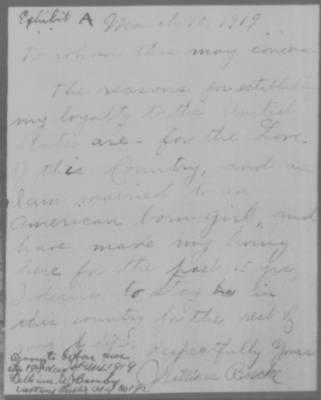 Exhibit A
March 10, 1919
To whom this may concern
The reasons for establishing
my loyalty to the United
States are - for the Love
of this Country, and as
I am married to an
American born girl, and
have made my living
here for the past 15 yrs,
I desire to stay in
this country for the rest of
my life.
Respectfully Yours
William
Sworn to before me
this day of 1919